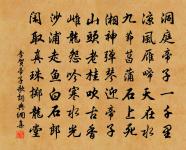 洞庭帝子一千里
涼風雁啼天在水
九節菖蒲石上死
湘神彈琴迎帝子
山頭老桂吹古香
雌龍怨吟寒水光
沙浦走魚白石郎
閑取真珠擲龍堂
李賀帝子歌詞典網